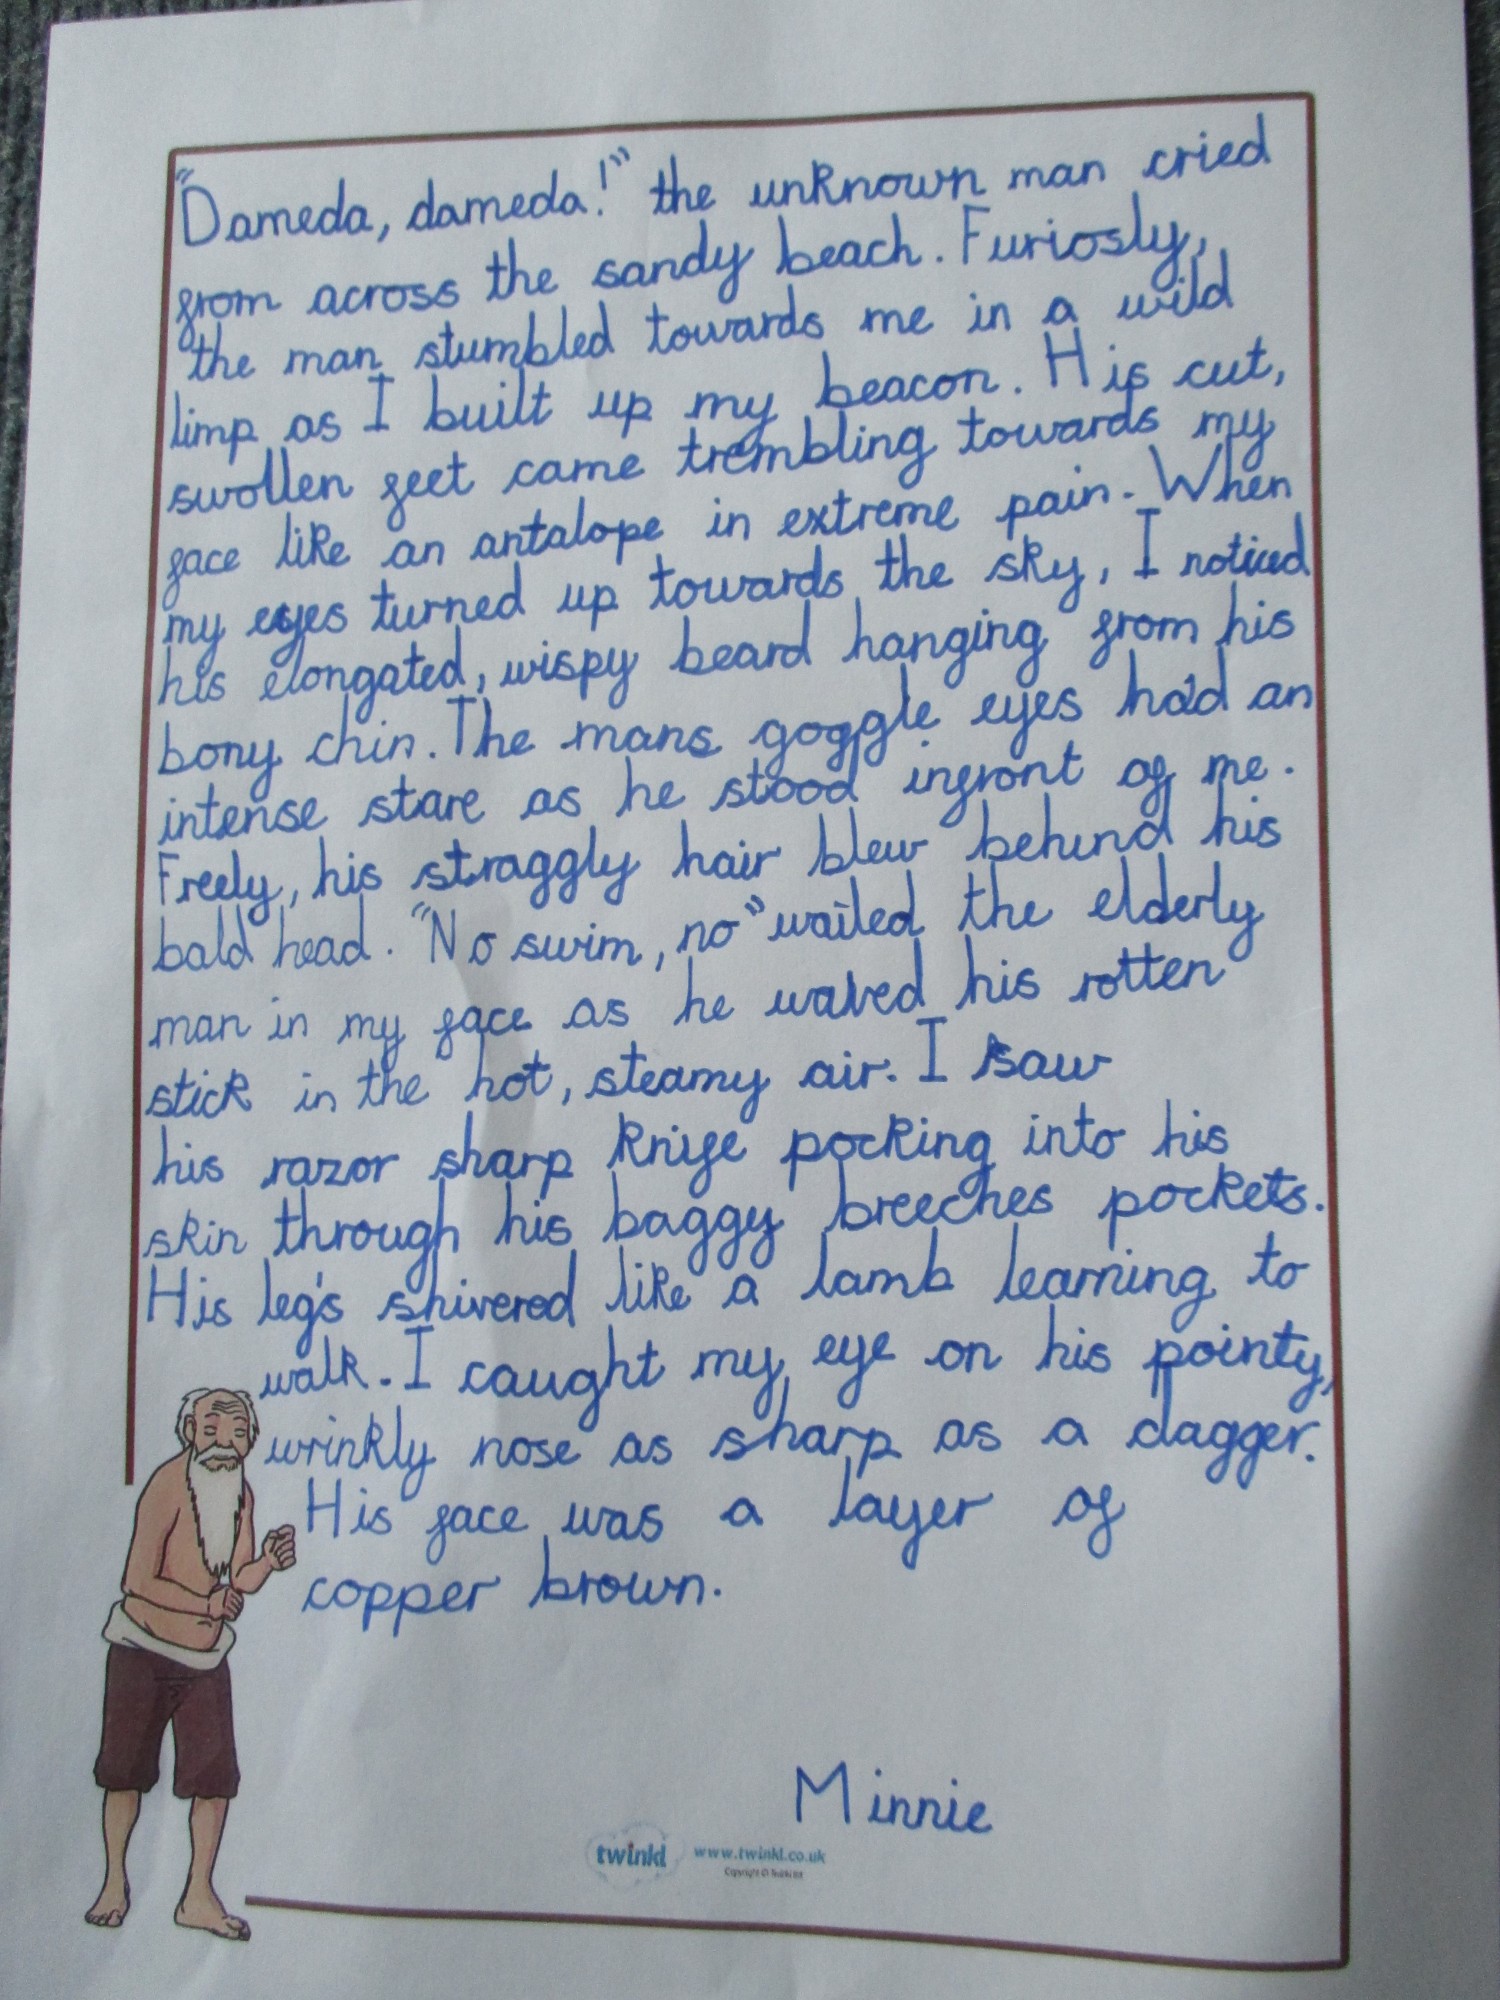 "Dameda, dameda!" the unknown man cried
from across the sandy beach. Furiosly,
the man stumbled towards me in a wild
limp as I built up my beacon. His cut,
swollen feet came trembling towards my
face like an antalope in extreme pain. When
my eyes turned up towards the sky, I noticed
his elongated, wispy beard hanging from his
bony chin. The mans goggle eyes had an
intense stare as he stood infront of me.
Freely, his straggly hair blew behind his
bald head. "No swim, no" wailed the elderly
man in my face as he waved his rotten
stick in the hot, steamy air. I saw
his razor sharp knife pocking into his
skin through his baggy breeches pockets.
His leg's shivered like a lamb learning to
walk. I caught my eye on his pointy,
wrinkly nose as sharp as a dagger.
His face was a layer of
copper brown.
Minnie
twinkl www.twinkl.co.uk